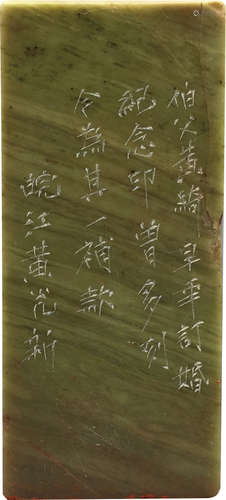 伯父黄绮早年訂婚
紀念印曾多刻
今為其一補款
皖江黃先新